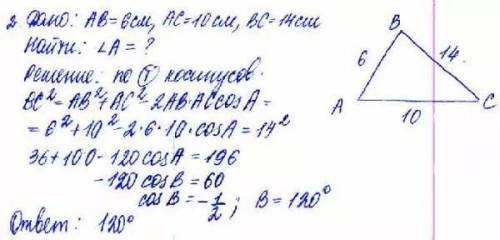 2. Дано: AB=6см, AC=10см, BC=14см
Найти: ∠A = ?
Решение: по Ⓣ косинусов.
BC²= AB²+AC²-2AB·ACcosA =
= 6²+10²-2·6·10·cosA = 14²
36+100-120cosA = 196
-120cosB = 60
cosB = -1/2 ; B = 120°
Ответ: 120°
B
6
14
A
10
C